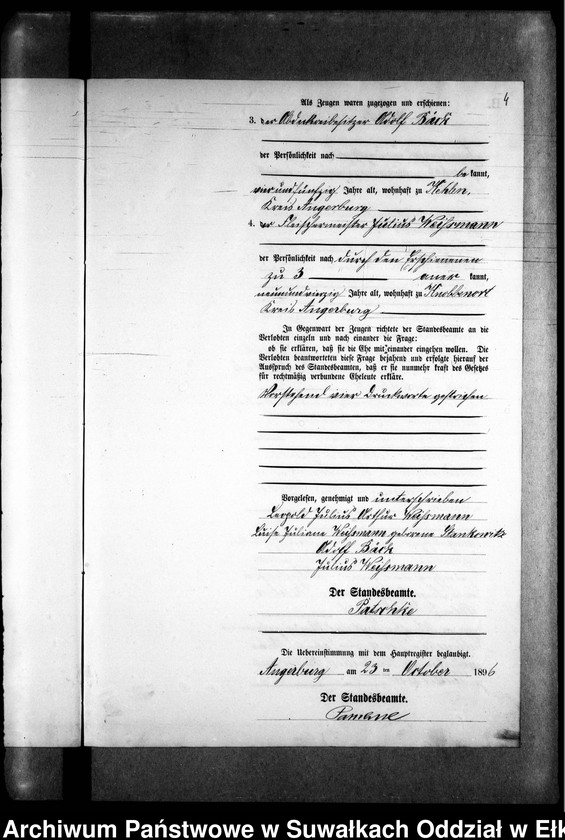 4
Als Zeugen waren zugezogen und erschienen:
3. der Abdeckereibesitzer Adolf Back
der Persönlichkeit nach
be kannt,
vierundfünfzig Jahre alt, wohnhaft zu Kehlen,
Kreis Angerburg
4. der Fleischermeister Julius Weissmann
der Persönlichkeit nach durch den Erschienenen
zu 3 aner kannt,
neunundvierzig Jahre alt, wohnhaft zu Knobbenort
Kreis Angerburg
In Gegenwart der Zeugen richtete der Standesbeamte an die
Verlobten einzeln und nach einander die Frage:
ob sie erklären, daß sie die Ehe mit einander eingehen wollen. Die
Verlobten beantworteten diese Frage bejahend und erfolgte hierauf der
Ausspruch des Standesbeamten, daß er sie nunmehr kraft des Gesetzes
für rechtmäßig verbundene Eheleute erkläre.
Vorstehend vier Druckworte gestrichen
Vorgelesen, genehmigt und unterschrieben
Leopold Julius Arthur Weissmann
Luise Juliane Weissmann geborene Stankowitz
Adolf Back
Julius Weissmann
Der Standesbeamte.
Patschke
Die Uebereinstimmung mit dem Hauptregister beglaubigt.
Angerburg am 23 ten October 1896
Der Standesbeamte.
Archiwum Państwowe w Suwałkach Oddział w Ełk